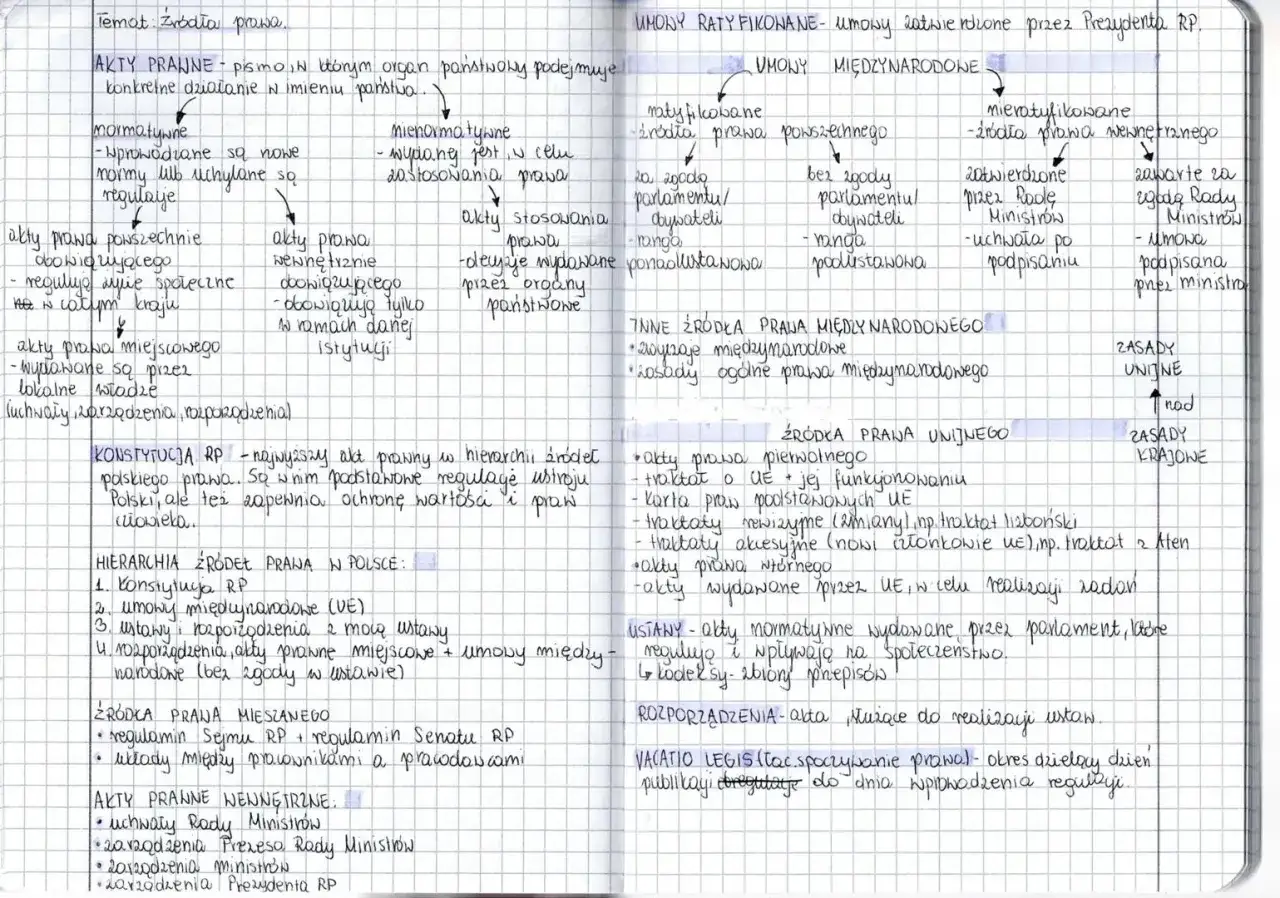 Temat: Źródła prawa.
AKTY PRAWNE - pismo, w którym organ państwowy podejmuje
konkretne działanie w imieniu państwa.
normatywne
- wprowadzane są nowe
normy lub uchylane są
regulacje
nienormatywne
- wydanej jest, w celu
zastosowania prawa
akty prawa powszechnie
obowiązującego
- regulują życie społeczne
w całym kraju
akty prawa miejscowego
- wydawane są przez
lokalne władze
(uchwały, zarządzenia, rozporządzenia)
akty prawa
wewnętrznie
obowiązującego
- obowiązują tylko
w ramach danej
istytucji
akty stosowania
prawa
- decyzje wydawane
przez organy
państwowe
KONSTYTUCJA RP - najwyższy akt prawny w hierarchii źródeł
polskiego prawa. Są w nim podstawowe regulacje ustroju
Polski, ale też zapewnia ochronę wartości i praw
człowieka.
HIERARCHIA ŹRÓDEŁ PRAWA W POLSCE:
1. Konstytucja RP
2. umowy międzynarodowe (UE)
3. ustawy i rozporządzenia z mocą ustawy
4. rozporządzenia, akty prawne miejscowe + umowy między-
narodowe (bez zgody w ustawie)
ŹRÓDŁA PRAWA MIESZANEGO
• regulamin Sejmu RP + regulamin Senatu RP
• układy między pracownikami a pracodawcami
AKTY PRAWNE WEWNĘTRZNE:
• uchwały Rady Ministrów
• zarządzenia Prezesa Rady Ministrów
• zarządzenia ministrów
• zarządzenia Prezydenta RP
UMOWY RATYFIKOWANE - umowy zatwierdzone przez Prezydenta RP.
UMOWY MIĘDZYNARODOWE
ratyfikowane
- źródła prawa powszechnego
nieratyfikowane
- źródła prawa wewnętrznego
za zgodą
parlamentu/
obywateli
- ranga
ponadustawowa
bez zgody
parlamentu/
obywateli
- ranga
podustawowa
zatwierdzone
przez Radę
Ministrów
- uchwała po
podpisaniu
zawarte za
zgodą Rady
Ministrów
- umowa
podpisana
przez ministra
INNE ŹRÓDŁA PRAWA MIĘDZYNARODOWEGO
• zwyczaje międzynarodowe
• zasady ogólne prawa międzynarodowego
ZASADY
UNIJNE
nad
ZASADY
KRAJOWE
ŹRÓDŁA PRAWA UNIJNEGO
• akty prawa pierwotnego
- traktat o UE + jej funkcjonowaniu
- Karta praw podstawowych UE
- traktaty rewizyjne (zmiany), np. traktat lizboński
- traktaty akcesyjne (nowi członkowie UE), np. traktat z Aten
• akty prawa wtórnego
- akty wydawane przez UE, w celu realizacji zadań
USTAWY - akty normatywne wydawane przez parlament, które
regulują i wpływają na społeczeństwo.
↳ kodeksy - zbiory przepisów
ROZPORZĄDZENIA - akta służące do realizacji ustaw.
VACATIO LEGIS (łac. spoczywanie prawa) - okres dzielący dzień
publikacji do dnia wprowadzenia regulacji.